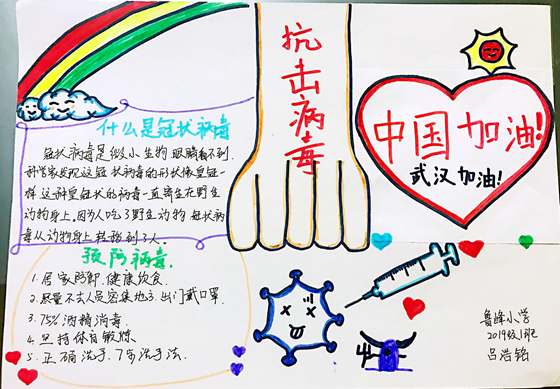 抗击病毒
什么是冠状病毒
冠状病毒是微小生物眼睛看不到.
科学家发现这冠状病毒的形状像皇冠一
样 这种皇冠状的病毒一直寄生在野生
动物身上。因为人吃了野生动物 冠状病
毒从动物身上转移到了人。
中国加油!
武汉加油!
预防病毒.
1.居家防御.健康饮食.
2.尽量不去人员密集地方.出门戴口罩.
3.75%酒精消毒.
4.坚持体育锻炼
5.正确洗手.7步洗手法.
鲁峰小学
2019级1班
吕浩铭